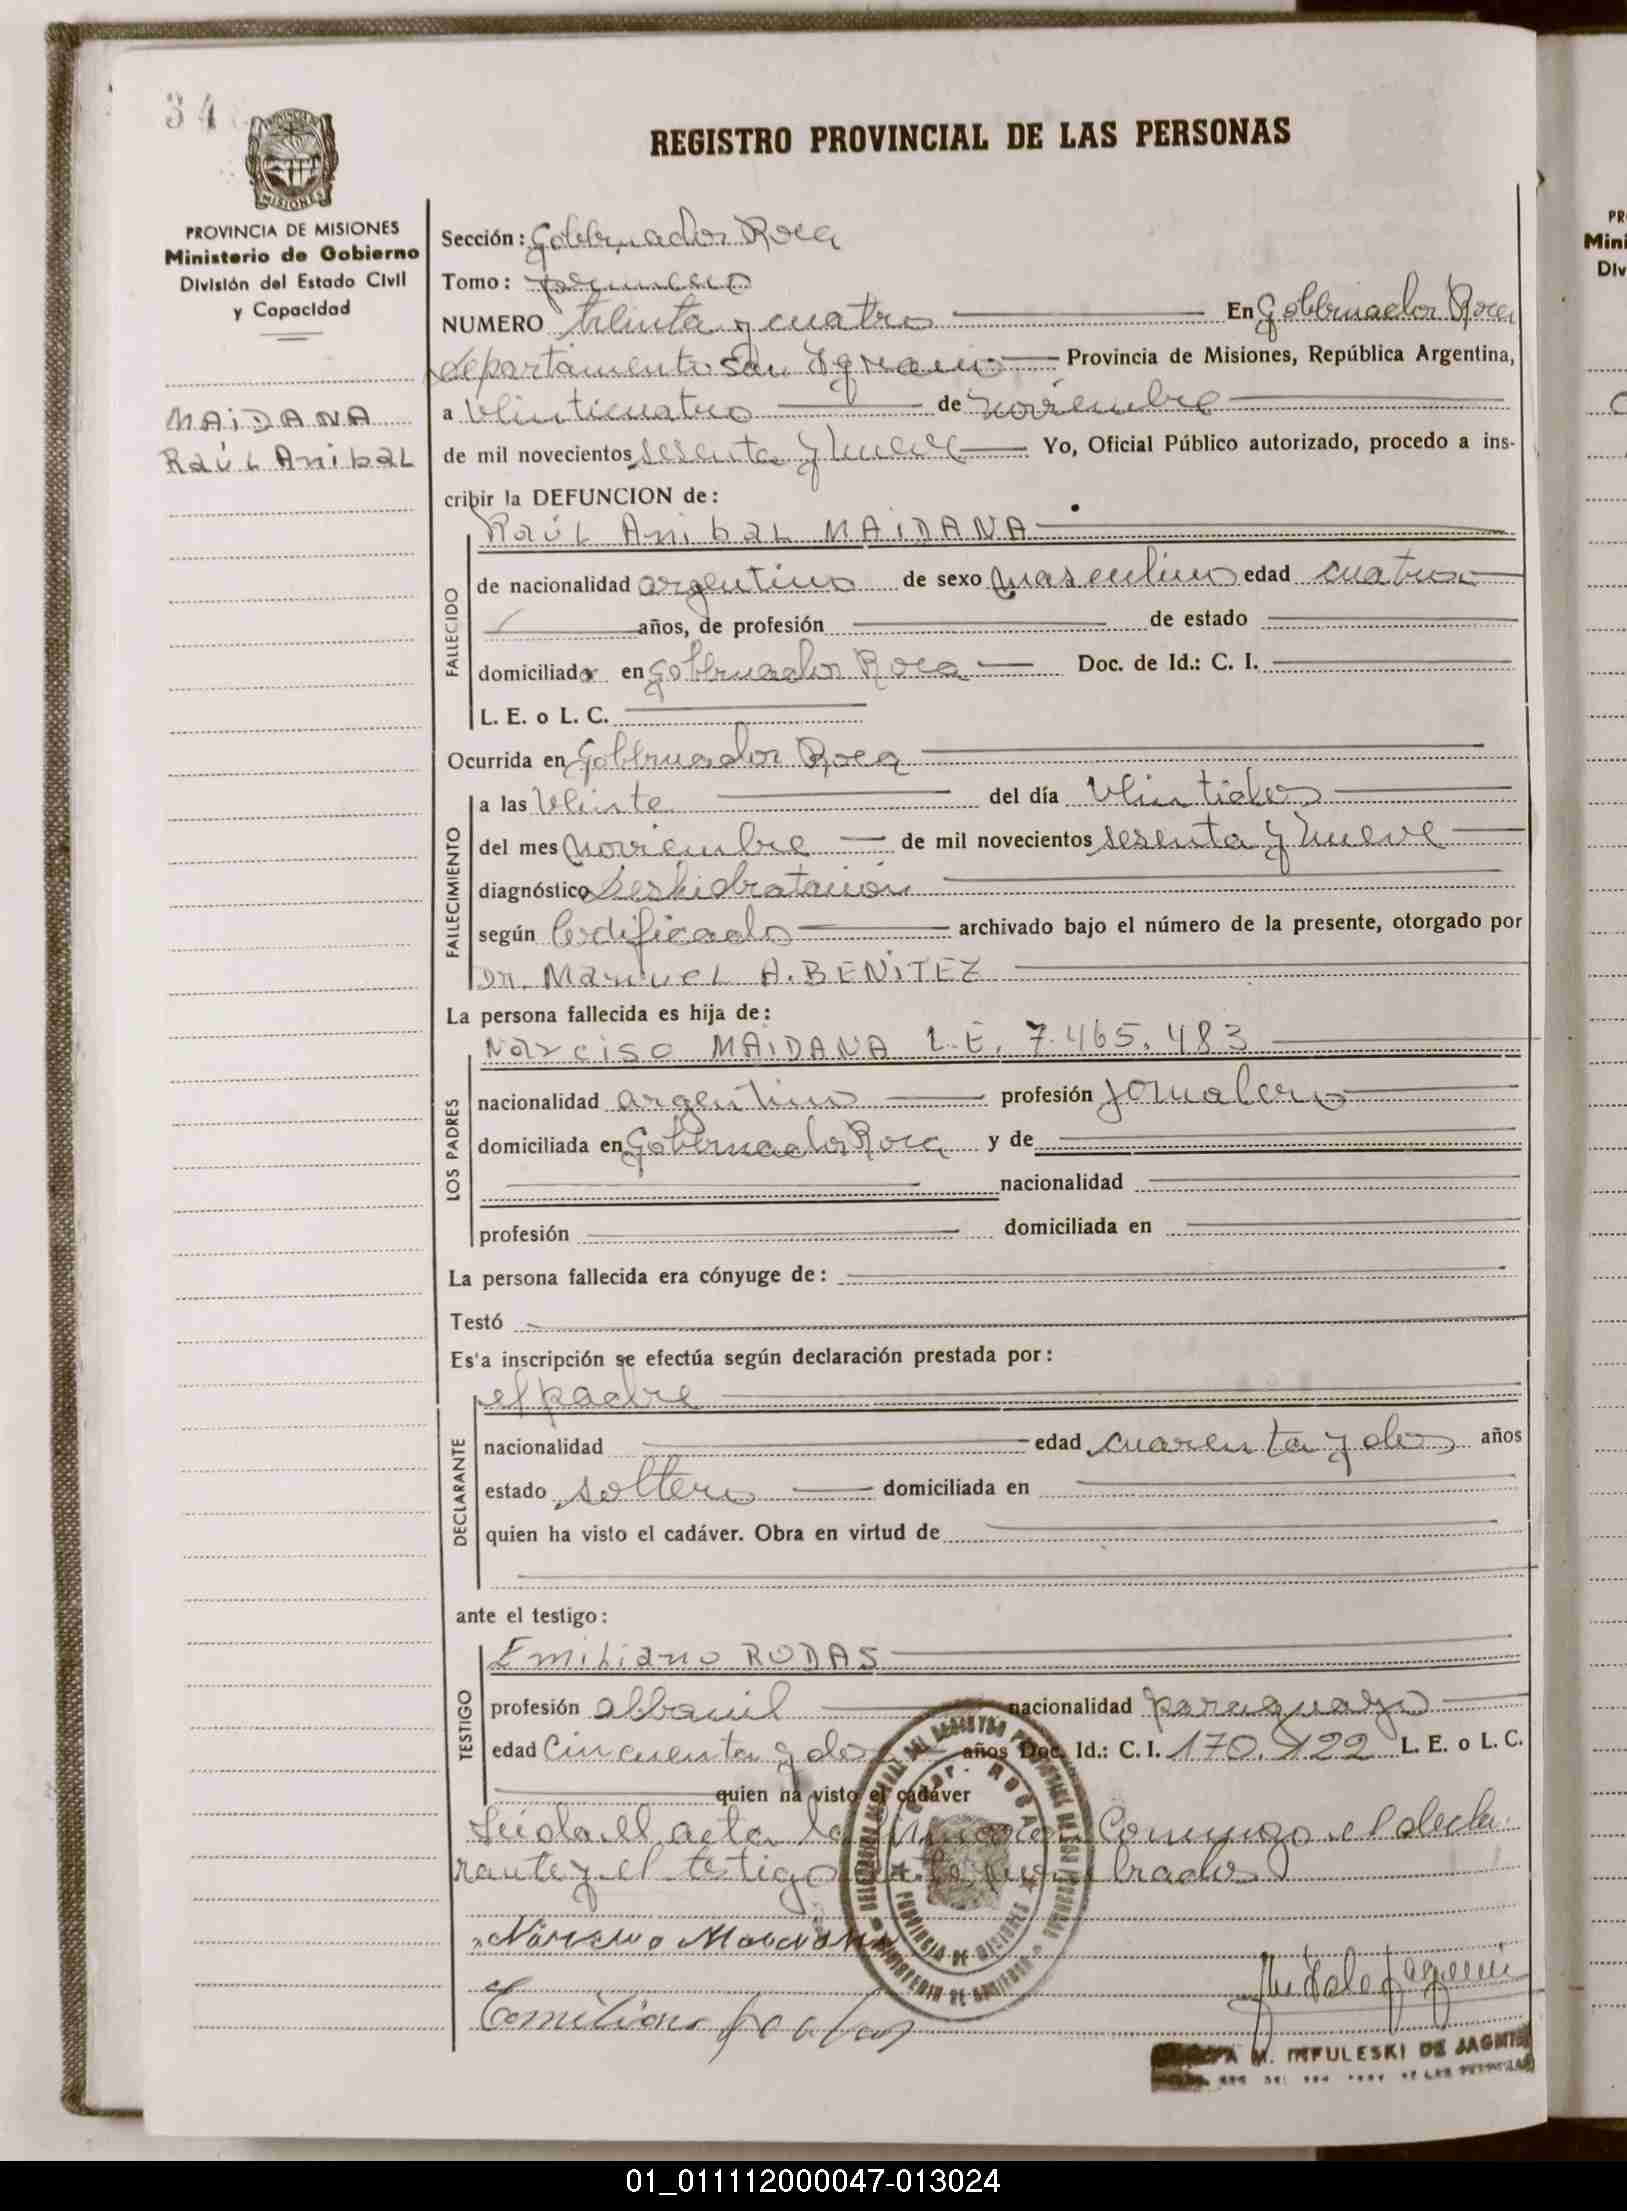 34
MISIONES
PROVINCIA DE MISIONES
Ministerio de Gobierno
División del Estado Civil
y Capacidad
MAIDANA
Raúl Anibal
REGISTRO PROVINCIAL DE LAS PERSONAS
Sección: Gobernador Roca
Tomo: primero
NUMERO treinta y cuatro En Gobernador Roca
departamento San Ignacio Provincia de Misiones, República Argentina,
a veinticuatro de noviembre
de mil novecientos sesenta y nueve Yo, Oficial Público autorizado, procedo a ins-
cribir la DEFUNCION de:
Raúl Anibal MAIDANA
FALLECIDO
de nacionalidad argentino de sexo masculino edad cuatro
años, de profesión de estado
domiciliado en Gobernador Roca Doc. de Id.: C. I.
L. E. o L. C.
Ocurrida en Gobernador Roca
FALLECIMIENTO
a las veinte del día veintidos
del mes noviembre de mil novecientos sesenta y nueve
diagnóstico Deshidratación
según Certificado archivado bajo el número de la presente, otorgado por
Dr. Manuel A. BENITEZ
La persona fallecida es hija de:
LOS PADRES
Narciso MAIDANA L.E. 7.465.483
nacionalidad argentino profesión jornalero
domiciliada en Gobernador Roca y de
nacionalidad
profesión domiciliada en
La persona fallecida era cónyuge de:
Testó
Es'a inscripción se efectúa según declaración prestada por:
DECLARANTE
el padre
nacionalidad edad cuarenta y dos años
estado soltero domiciliada en
quien ha visto el cadáver. Obra en virtud de
ante el testigo:
TESTIGO
Emiliano RODAS
profesión albanil nacionalidad paraguayo
edad cincuenta y dos años Doc. Id.: C. I. 170. L. E. o L. C.
quien ha visto el cadáver
Leida el acta la firman Conmigo el decla
rante y el testigo nombrados
Narciso Maidana
Emiliano Rodas
M. INFULESKI DE JAGMIN
PROVINCIA DE MISIONES
01_011112000047-013024